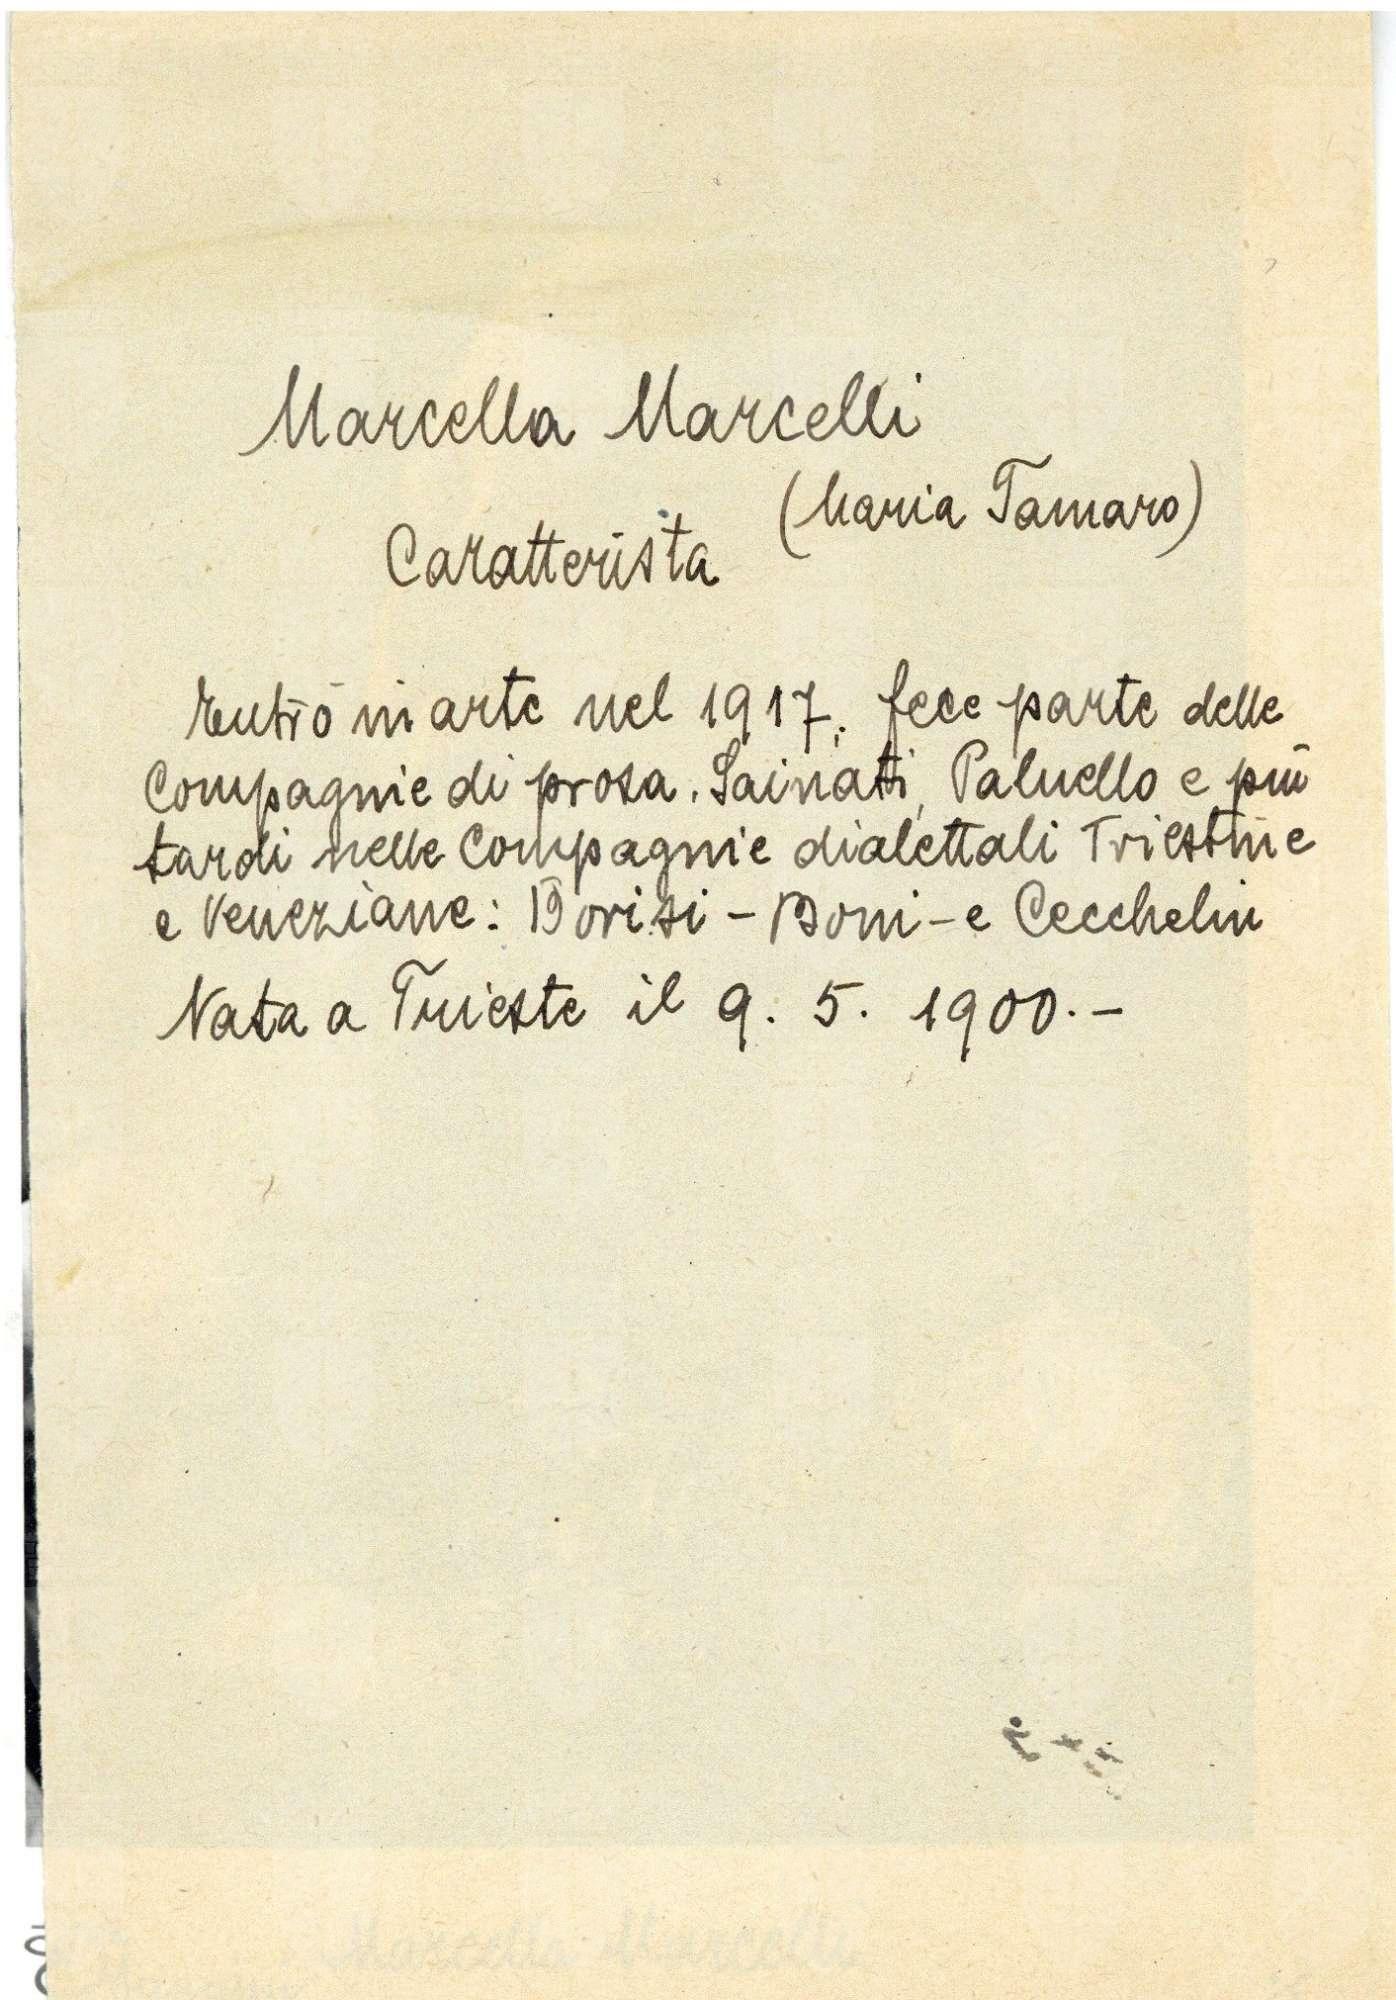 Marcella Marcelli
(Maria Tamaro)
Caratterista
Entrò in arte nel 1917; fece parte delle
Compagnie di prosa. Sainati, Paluello e più
tardi nelle Compagnie dialettali Triestine
e Veneziane: Borisi - Boni - e Cecchelin
Nata a Trieste il 9. 5. 1900.-
Marcella Marcelli